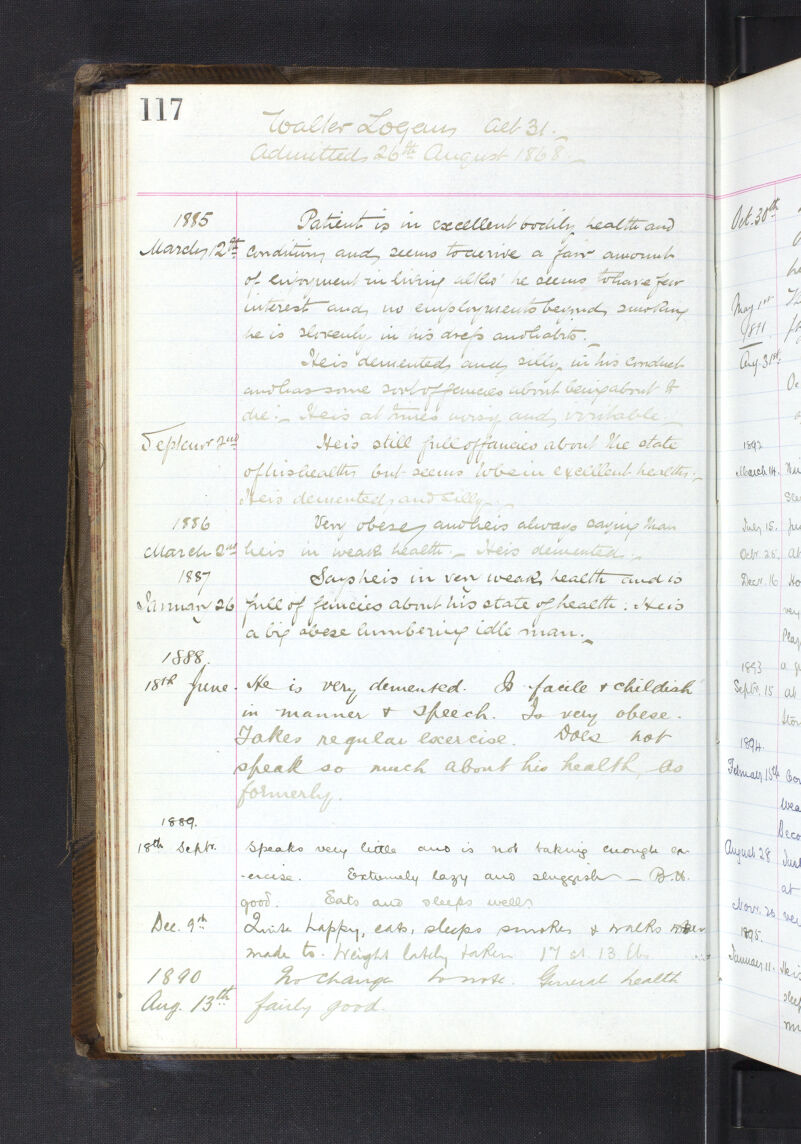 117
Walter Logan, aet 31.
Admitted, 26th August 1868
1885 Patient is in excellent bodily health and
March 12th condition, and seems to derive a fair amount
of enjoyment in living altho' he seems to have few
interest and no employments beyond smoking
he is slovenly in his dress and habits.
He is demented and silly in his conduct
and has some sort of fancies about being about to
die. He is at times noisy and irritable.
Septemr 2nd He is still full of fancies about the state
of his health but seems to be in excellent health.
He is demented and silly.
1886 Very obese, and he is always saying that
March 2nd he is in weak health. He is demented.
1887 Says he is in very weak health and is
January 26 full of fancies about his state of health. He is
a big obese lumbering idle man.
1888.
18th June. He is very demented. Is facile & childish
in manner & speech. Is very obese.
Takes regular exercise. Does not
speak so much about his health, as
formerly.
1889.
18th Septr. Speaks very little and is not taking enough ex-
-ercise. Extremely lazy and sluggish — B.H.
good. Eats and sleeps well
Dec. 9th Quite happy, eats, sleeps smokes & walks when
made to. Weight lately taken 17 st. 13 lbs
1890 No change to note. General health
Aug. 13th fairly good.
Oct. 30th
May 1st
1891
Aug. 31st
1892
March 14.
July 15.
Octr. 25.
Decr. 16
1893
Septr. 15
1894.
February 15th
August 28
Novr. 26
1895.
January 11.